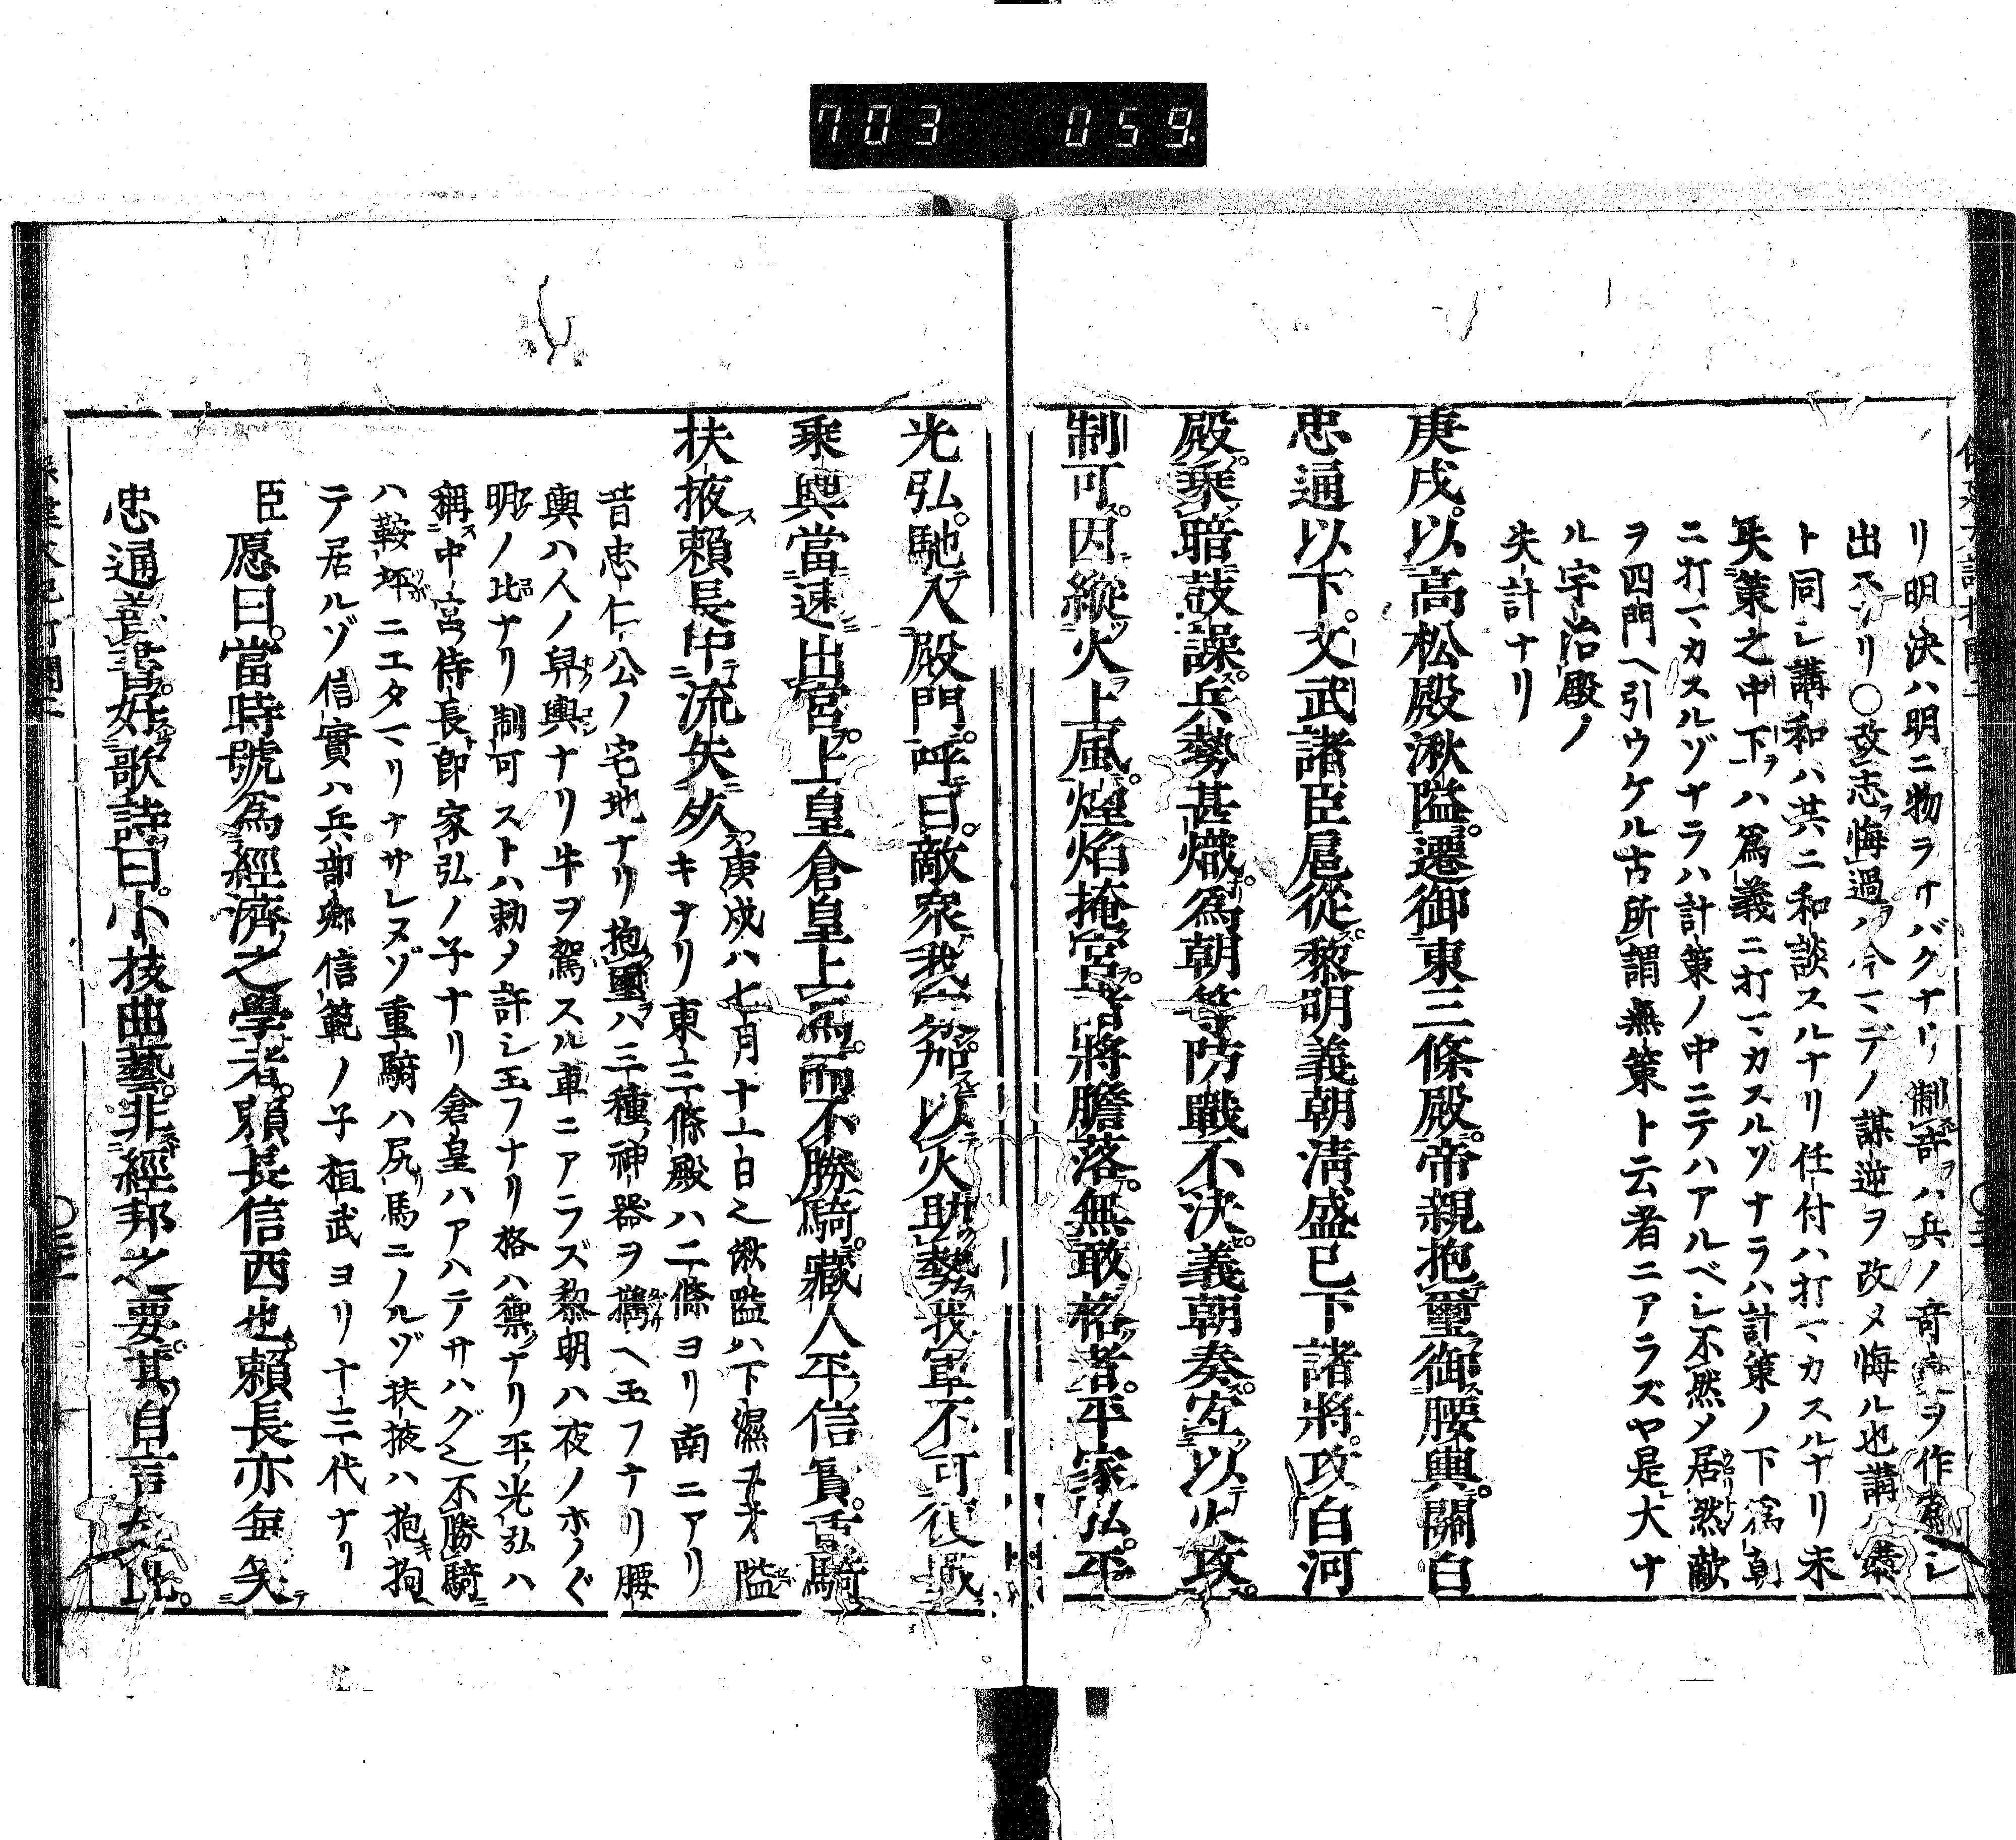 703 059
リ明決ハ明ニ物ヲサバクナリ制許ハ兵ノ奇 ヲ作 シ
出 リ〇改志悔過ハ今マデノ謀逆ヲ改メ悔ル也講ハ
ト同シ講和ハ共ニ和談スルナリ任付ハ打マカスルナリ未
失策之中下ハ為義ニ打マカスルゾナラハ計策ノ下為朝
ニ打マカスルゾナラハ計策ノ中ニテハアルベシ不然メ居然敵
ヲ四門ヘ引ウケル古所謂無策ト云者ニアラズヤ是大ナ
ル宇治殿ノ
失計ナリ
庚戌以高松殿湫隘遷御東三條殿帝親抱璽御腰輿關白
忠通以下文武諸臣扈從黎明義朝淸盛已下諸將攻白河
殿乘暗鼓譟兵勢甚熾為朝等防戰不決義朝奏 以火攻
制可因縱火上風煙焰掩宮 將膽落無敢格者平家弘平
光弘馳入殿門呼日敵衆我 以火助勢我軍不可復戰
乘輿當速出宮上皇倉皇上馬而不勝騎藏人平信實 騎
扶掖賴長中流矢 庚戌ハ七月十一日之湫隘ハ下濕 隘
キナリ東三條殿ハ二條ヨリ南ニアリ
昔忠仁公ノ宅地ナリ抱璽ハ三種神器ヲ攜ヘ玉フナリ腰
輿ハ人ノ舁輿ナリ牛ヲ駕スル車ニアラズ黎明ハ夜ノホノぐ
明ノ比ナリ制可ストハ勅メ許シ玉フナリ格ハ禦ナリ平光弘ハ
稱中宮侍長郎家弘ノ子ナリ倉皇ハアハテサハグ之不勝騎
ハ鞍坪ニエタマリナサレヌゾ重騎ハ尻馬ニノルゾ扶掖ハ抱拘
テ居ルゾ信實ハ兵部卿信範ノ子桓武ヨリ十三代ナリ
臣愿曰當時號為經濟之學者賴長信西也賴長亦每矣
忠通善書好歌詩曰小技曲藝非經邦之要其自言 此